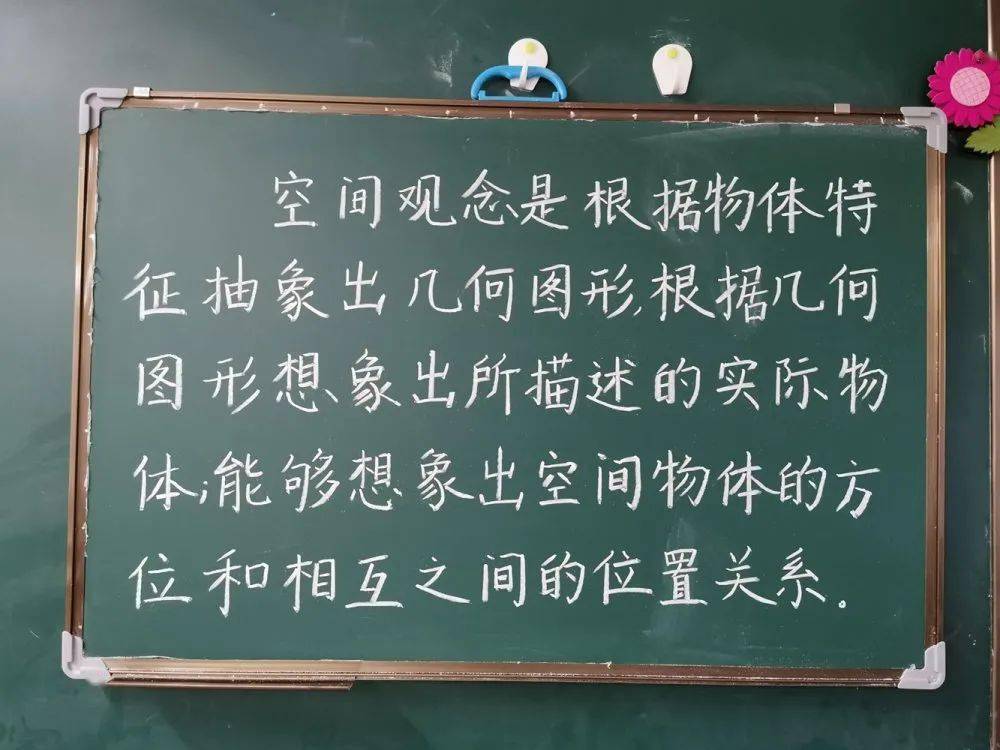 空间观念是根据物体特
征抽象出几何图形,根据几何
图形想象出所描述的实际物
体;能够想象出空间物体的方
位和相互之间的位置关系。